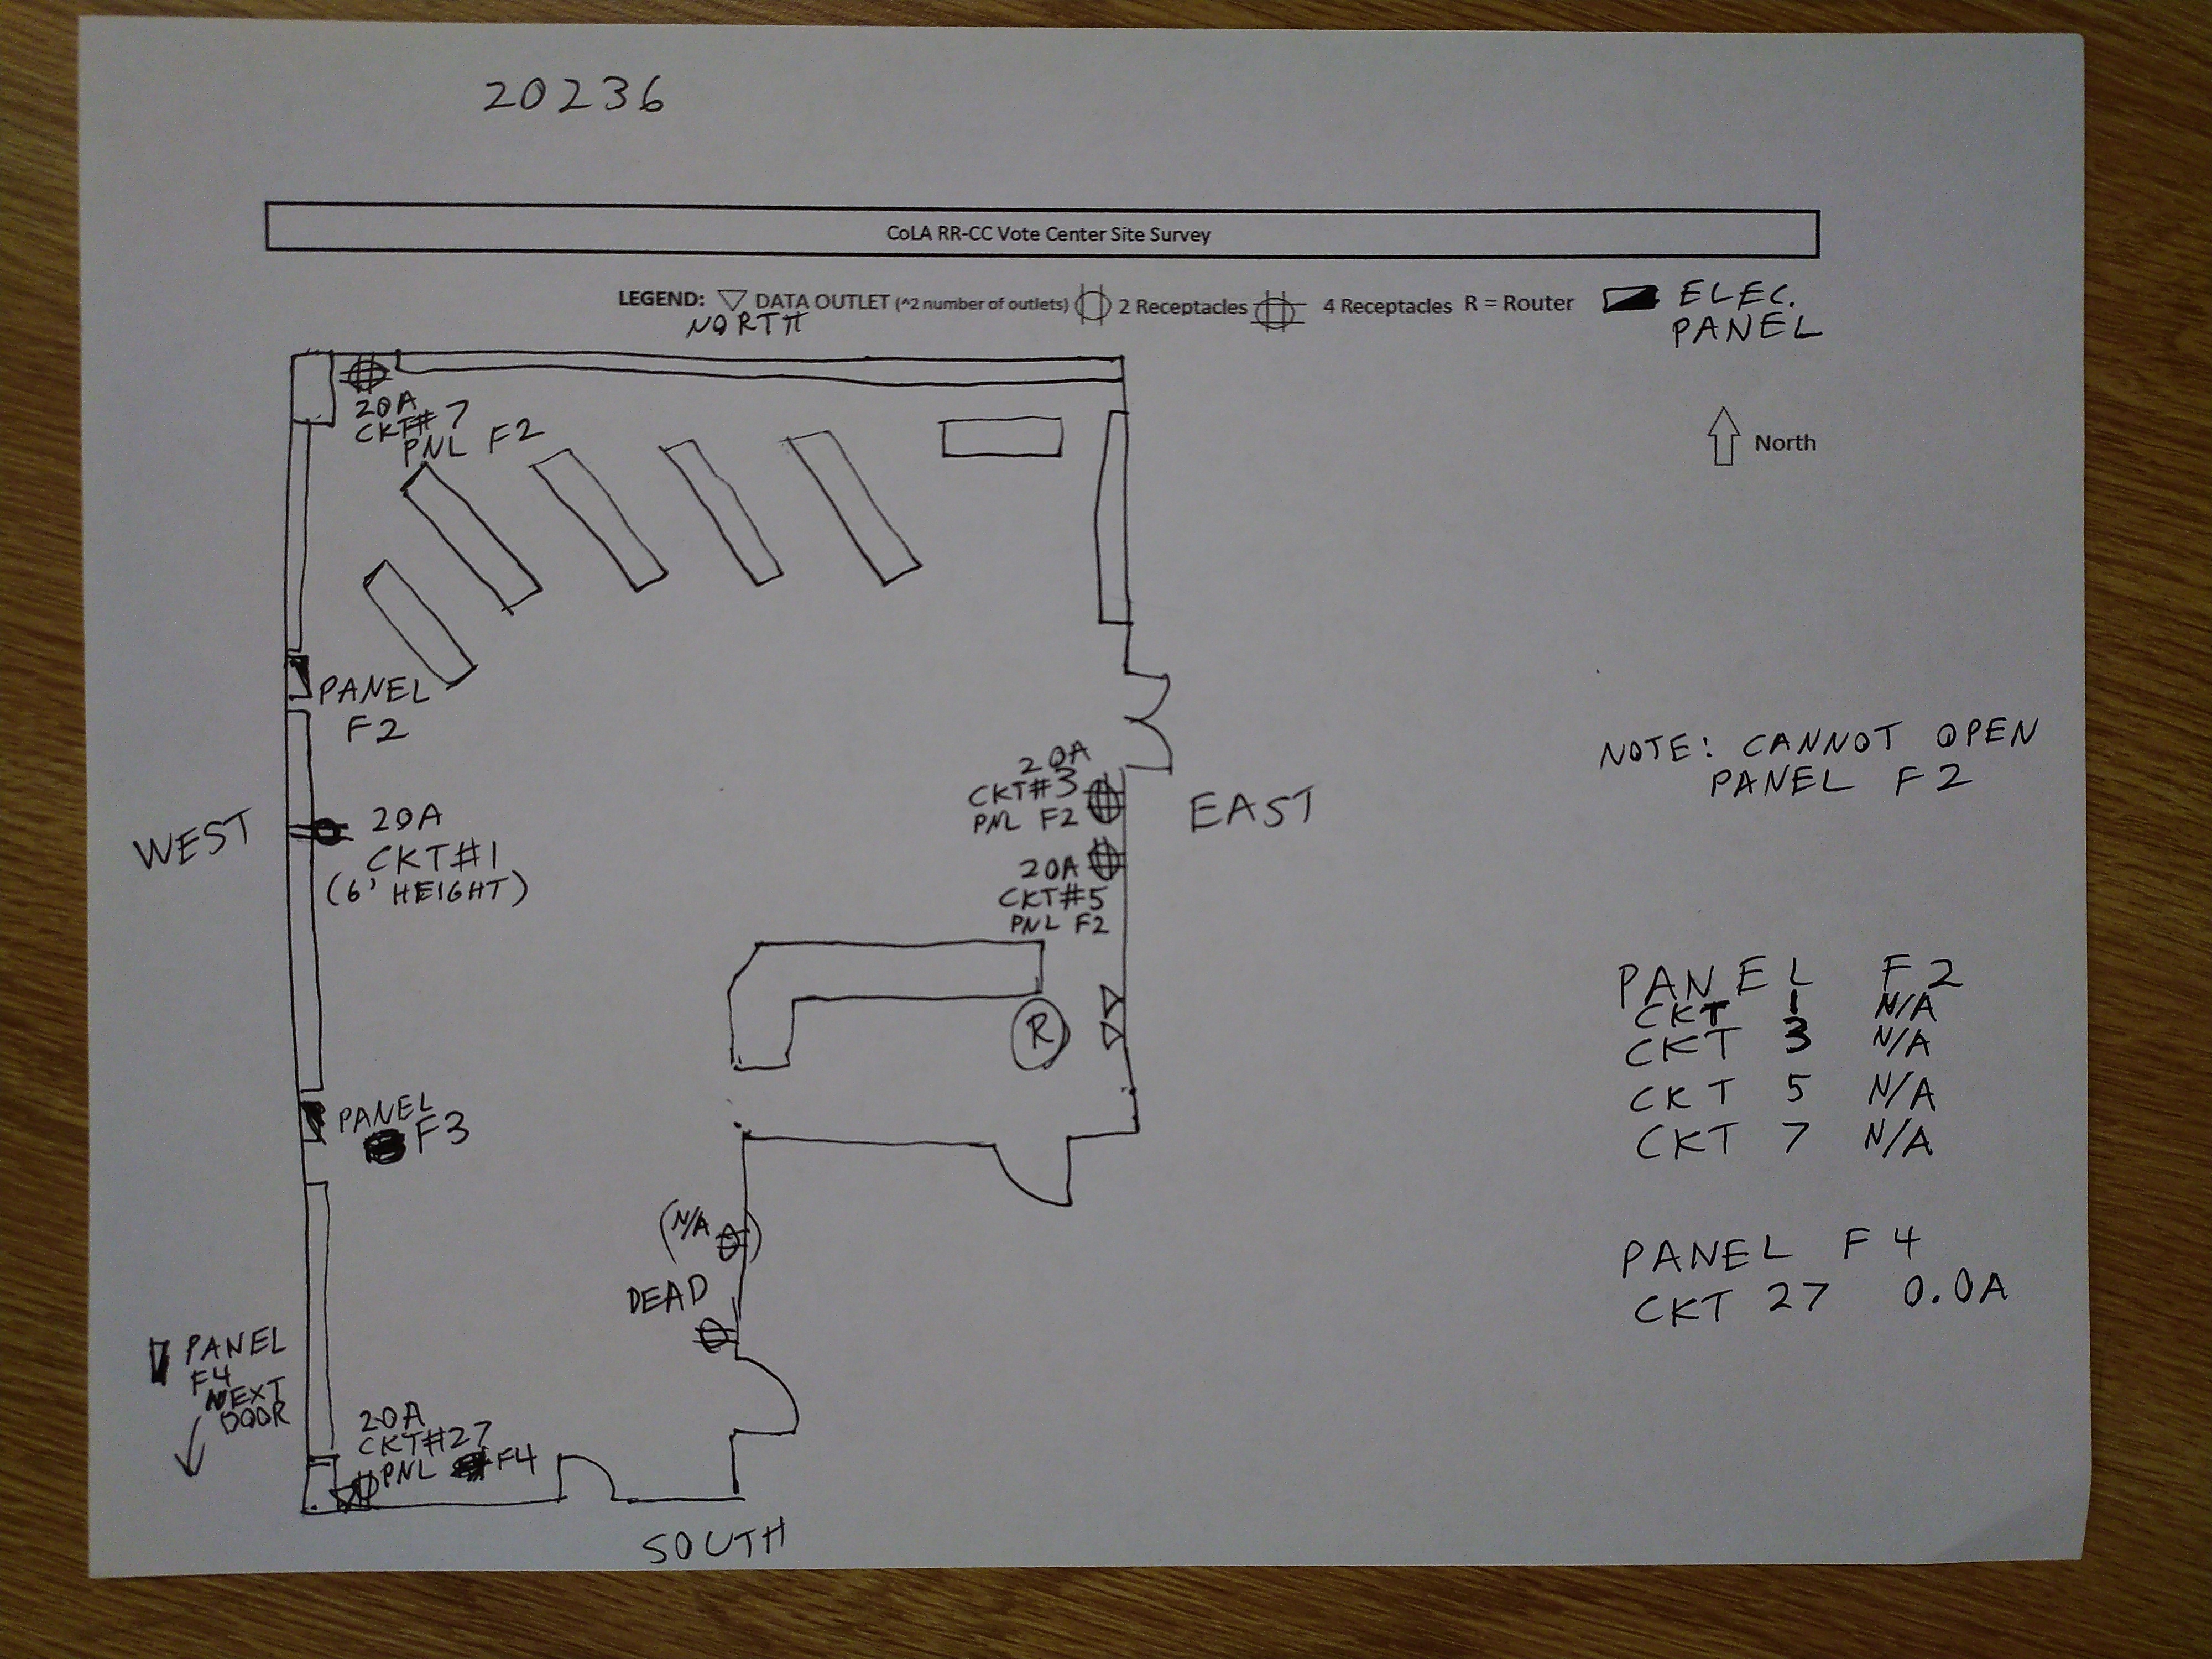 20236
CoLA RR-CC Vote Center Site Survey
LEGEND: DATA OUTLET (^2 number of outlets) 2 Receptacles 4 Receptacles R = Router ELEC. PANEL
NORTH
North
20A
CKT#7
PNL F2
PANEL
F2
NOTE: CANNOT OPEN
PANEL F2
WEST
20A
CKT#1
(6' HEIGHT)
20A
CKT#3
PNL F2
EAST
20A
CKT#5
PNL F2
R
PANEL F2
CKT 1 N/A
CKT 3 N/A
CKT 5 N/A
CKT 7 N/A
PANEL
F3
(N/A)
DEAD
PANEL F4
CKT 27 0.0A
PANEL
F4
NEXT
DOOR
20A
CKT#27
PNL F4
SOUTH